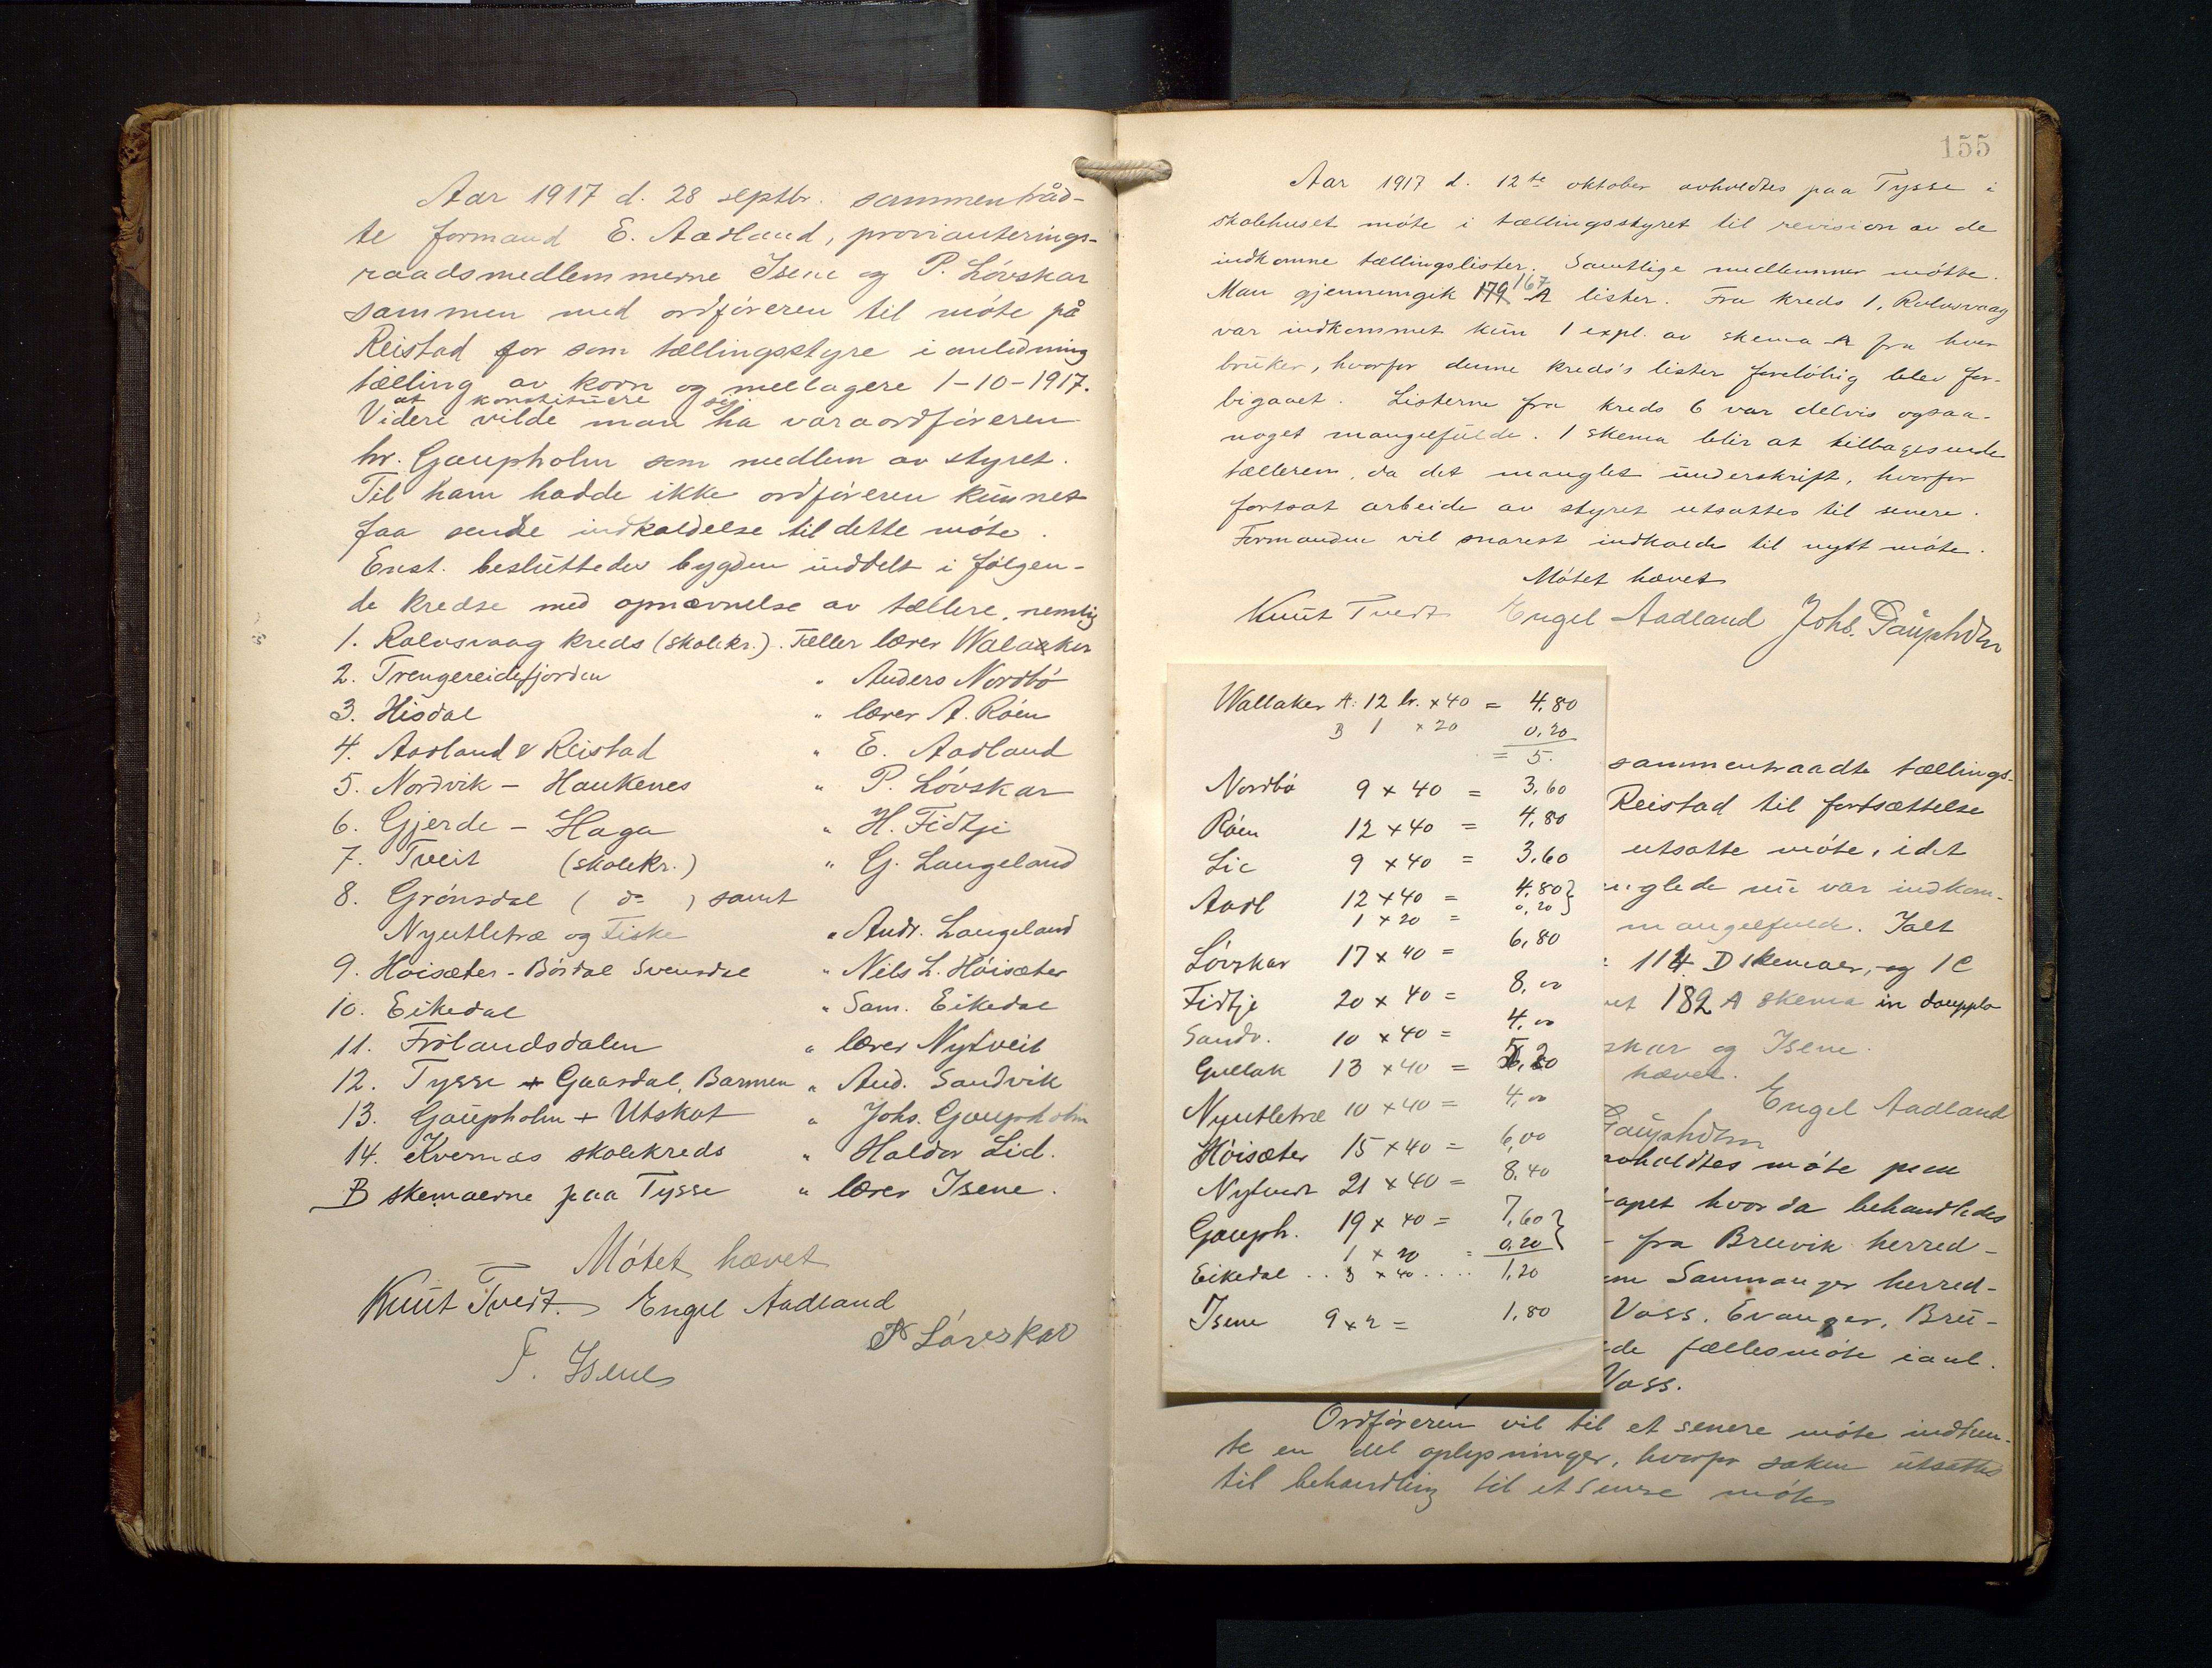 Aar 1917 d. 28 septbr. sammentråd-
te formand E. Aadland, provianterings-
raadsmedlemmerne Isene og P. Lövskar
sammen med ordföreren til möte på
Reistad for som tællingsstyre i anledning
tælling av korn og mellagere 1-10-1917.
at konstituere sig.
Videre vilde man ha varaordföreren
hr. Gaupholm som medlem av styret.
Til ham hadde ikke ordföreren kunnet
faa sende indkaldelse til dette möte.
Enst. besluttedes bygden inddelt i fölgen-
de kredse med opnævnelse av tællere, nemlig
1. Rolvsvaag kreds (skolekr.). Tæller lærer Walaker
2. Trengereidfjorden " Anders Nordbö
3. Hisdal " lærer A. Röen
4. Aadland & Reistad " E. Aadland
5. Nordvik - Haukenes " P. Lövskar
6. Gjerde - Haga " H. Fidtje
7. Tveit (skolekr.) " G. Langeland
8. Grönsdal ( do ) samt
Nyutletræ og Fiske " Andr. Langeland
9. Höisæter - Bördal Svendal " Nils L. Höisæter
10. Eikedal " Sam. Eikedal
11. Frölandsdalen " lærer Nytveit
12. Tysse + Gaasdal, Barmen " And. Sandvik
13. Gaupholm + Utskot " Johs. Gaupholm
14. Kvernæs skolekreds " Haldor Lid.
B skemaerne paa Tysse " lærer Isene.
Mötet hævet
Knut Tvedt. Engel Aadland
P Lövskar
T. Isene
155
Aar 1917 d. 12te oktober avholdtes paa Tysse i
skolehuset möte i tællingsstyret til revision av de
indkomne tællingslister. Samtlige medlemmer mötte.
167
Man gjennemgik 179 A lister. Fra kreds 1, Rolvsvaag
var indkommet kun 1 expl. av skema A fra hver
bruker, hvorfor denne kreds's lister forelöbig blev for-
bigaaet. Listerne fra kreds 6 var delvis ogsaa
noget mangelfulde. 1 skema blir at tilbagesende
tælleren, da det manglet underskrift, hvorfor
fortsat arbeide av styret utsattes til senere.
Formanden vil snarest indkalde til nytt möte.
Mötet hævet
Knut Tvedt Engel Aadland Johs. Gaupholm
Wallaker A: 12 br. x 40 = 4,80
B 1 x 20 0,20
= 5.
Nordbö 9 x 40 = 3,60
Röen 12 x 40 = 4,80
Lie 9 x 40 = 3,60
Aadl 12 x 40 = 4,80
1 x 20 = 0,20
Lövskar 17 x 40 = 6,80
Fidtje 20 x 40 = 8,00
Sandv. 10 x 40 = 4,00
Gullak 13 x 40 = 5,20
Nyutletræ 10 x 40 = 4,00
Höisæter 15 x 40 = 6,00
Nytvedt 21 x 40 = 8,40
Gauph. 19 x 40 = 7,60
1 x 20 = 0,20
Eikedal .. 3 x 40 .... 1,20
Isene 9 x 2 = 1,80
sammentraadte tællings-
Reistad til fortsættelse
utsatte möte, idet
nglede nu var indkom-
mangelfulde. Ialt
114 D skemaer, og 1 C
et 182 A skema in douplo
skar og Isene.
hævet.
Engel Aadland
Gaupholm
avholdtes möte paa
apet hvor da behandledes
- fra Bruvik herred-
m Samnanger herred-
Voss, Evanger, Bru-
de fællesmöte i anl.
Voss.
Ordföreren vil til et senere möte indhen-
te en del oplysninger, hvorfor saken utsættes
til behandling til et senere möte